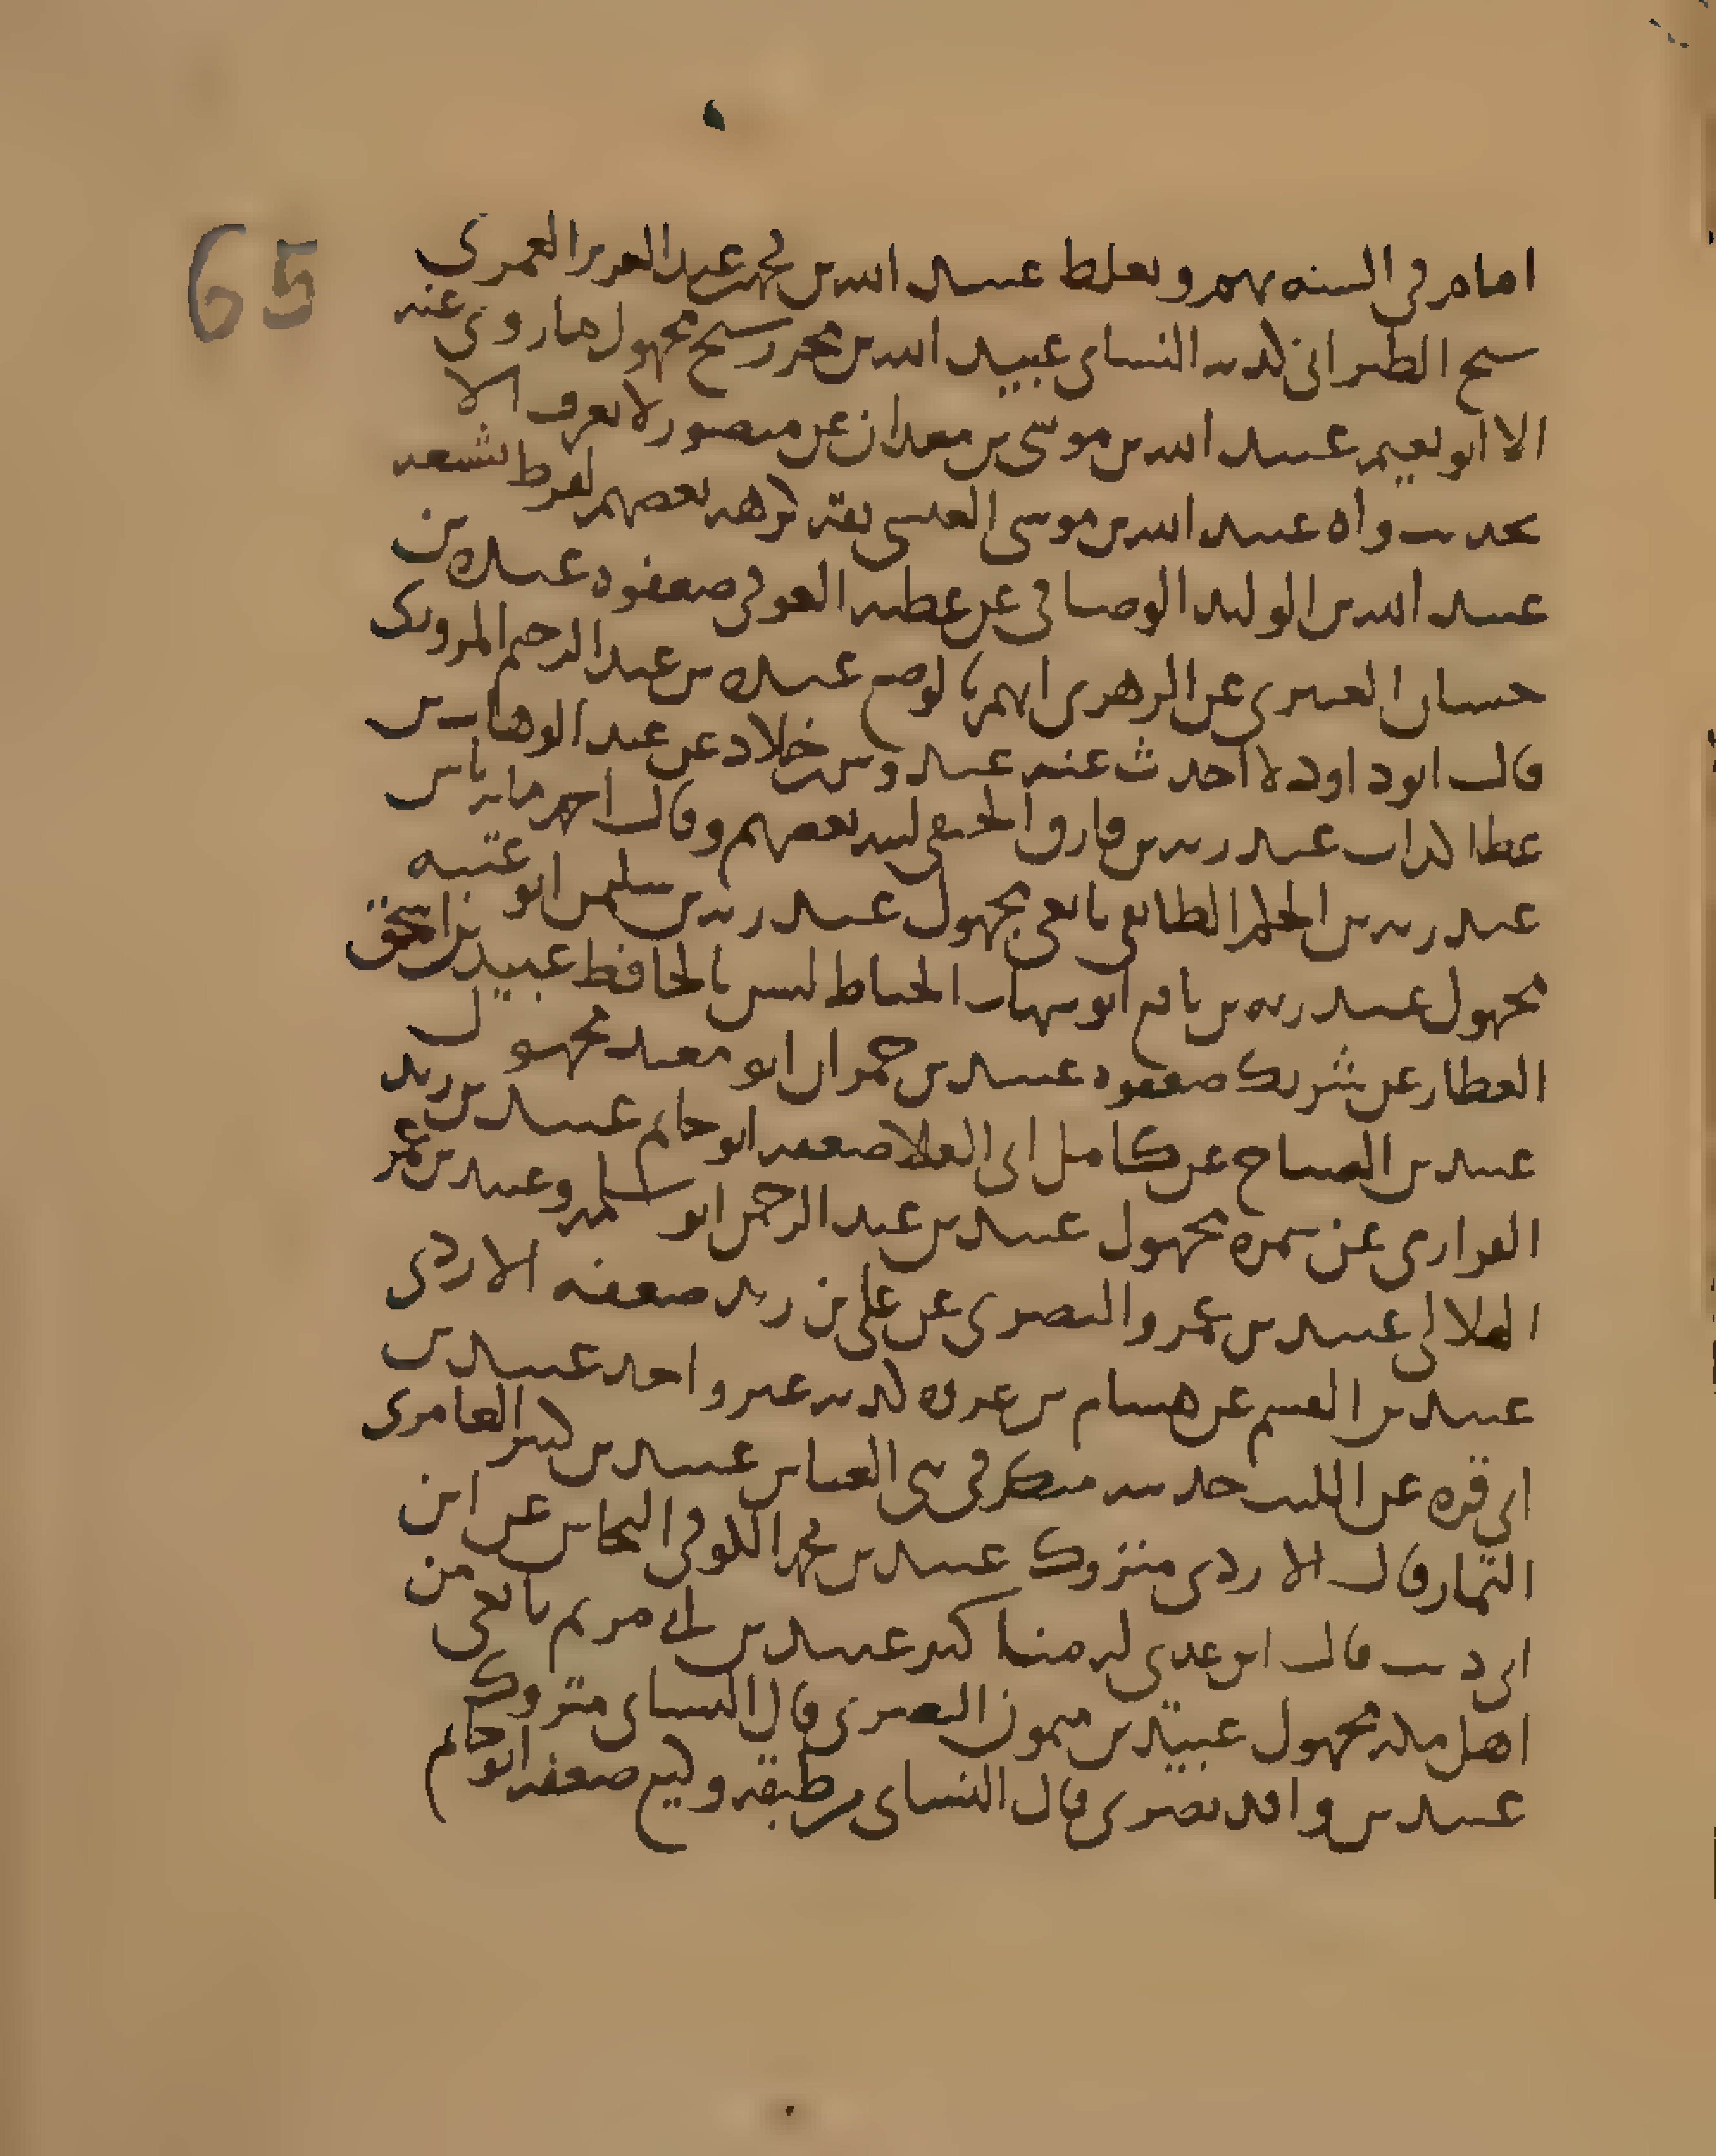 65
امام في السنه يهم ويغلط عبيد الله بن محمد بن عبد العزيز العمري
شيخ الطبراني كذبه النساى عبيد الله بن محرر شيخ مجهول ما روى عنه
الا ابو نعيم عبيد الله بن موسى بن معدان عن منصور لا يعرف الا
بحديث واه عبيد الله بن موسى العبسي ثقه كرهه بعضهم لفرط تشيعه
عبيد الله بن الوليد الوصافي عن عطيه العوفي ضعفوه عبيد الله بن
حسان العنبرى عن الزهرى اتهم بالوضع عبده بن عبد الرحيم المروزى
قال ابو داود لا احدث عنه عبدوس بن خلاد عن عبد الوهاب بن
عطا كذاب عبد ربه بن بارق الحنفي لينه بعضهم وقال احمد ما به باس
عبد ربه بن الحكم الطايفي تابعي مجهول عبد ربه بن سليمن ابو عتبه
مجهول عبد ربه بن نافع ابو شهاب الحناط ليس بالحافظ عبيد بن اسحق
العطار عن شريك ضعفوه عبيد بن حمران ابو معبد مجهول
عبيد بن الصباح عن كامل ابى العلا ضعفه ابو حاتم عبيد بن زيد
الفزارى عن سمره مجهول عبيد بن عبد الرحمن ابو سلمه وعبيد بن عمر
الهلالى عبيد بن عمرو البصرى عن على بن زيد ضعفه الازدى
عبيد بن القسم عن هشام بن عروه كذبه غير واحد عبيد بن
ابي قره عن الليث حديثه منكر في بنى العباس عبيد بن كثير العامرى
التمار قال الازدى متروك عبيد بن محمد الكوفي النحاس عن ابن
ابي ذيب قال ابن عدى له مناكير عبيد بن ابي مريم تابعي من
اهل مكه مجهول عبيد بن ميمون البصرى قال النساى متروك
عبيد بن واقد بصرى قال النساى من طبقه وكيع ضعفه ابو حاتم